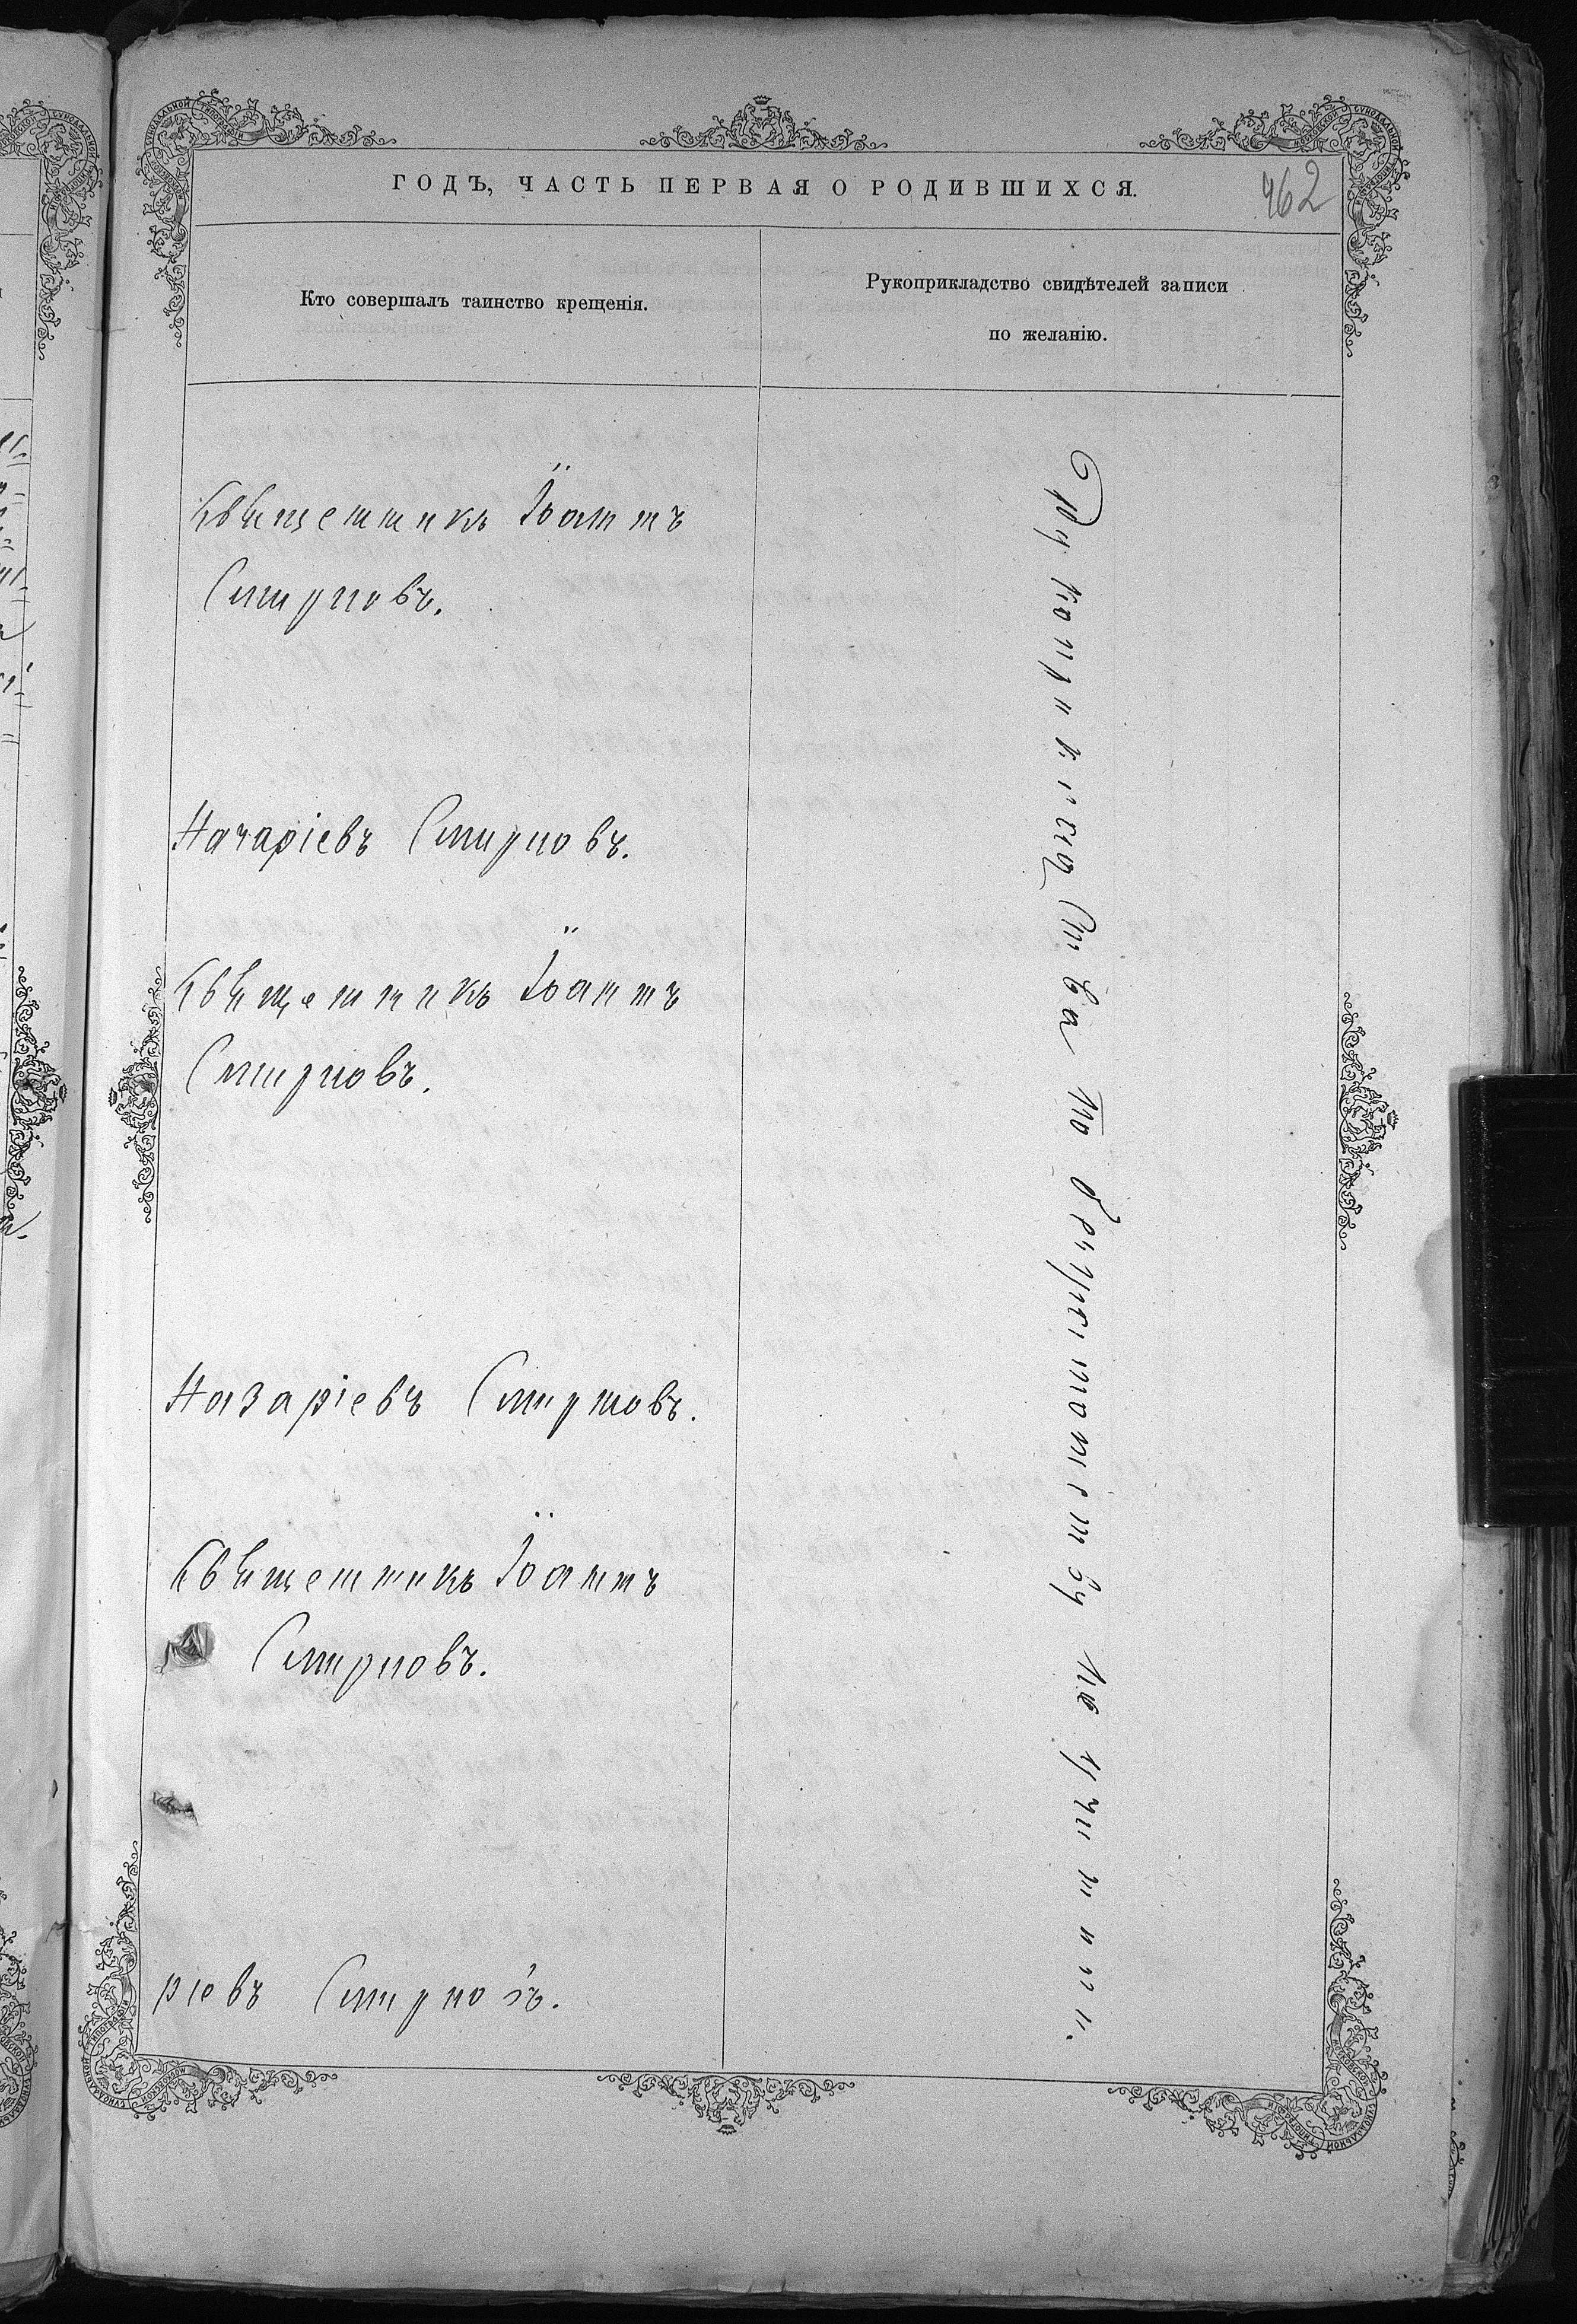 ГОДЪ, ЧАСТЬ ПЕРВАЯ О РОДИВШИХСЯ.
462
Кто совершалъ таинство крещенія.
Рукоприкладство свидѣтелей записи
по желанію.
Священникъ Іоаннъ
Смирновъ.
Назаріевъ Смирновъ.
Священникъ Іоаннъ
Смирновъ.
Назаріевъ Смирновъ.
Священникъ Іоаннъ
Смирновъ.
ріевъ Смирновъ.
Рукоприкладства по безграмотству не учинили.